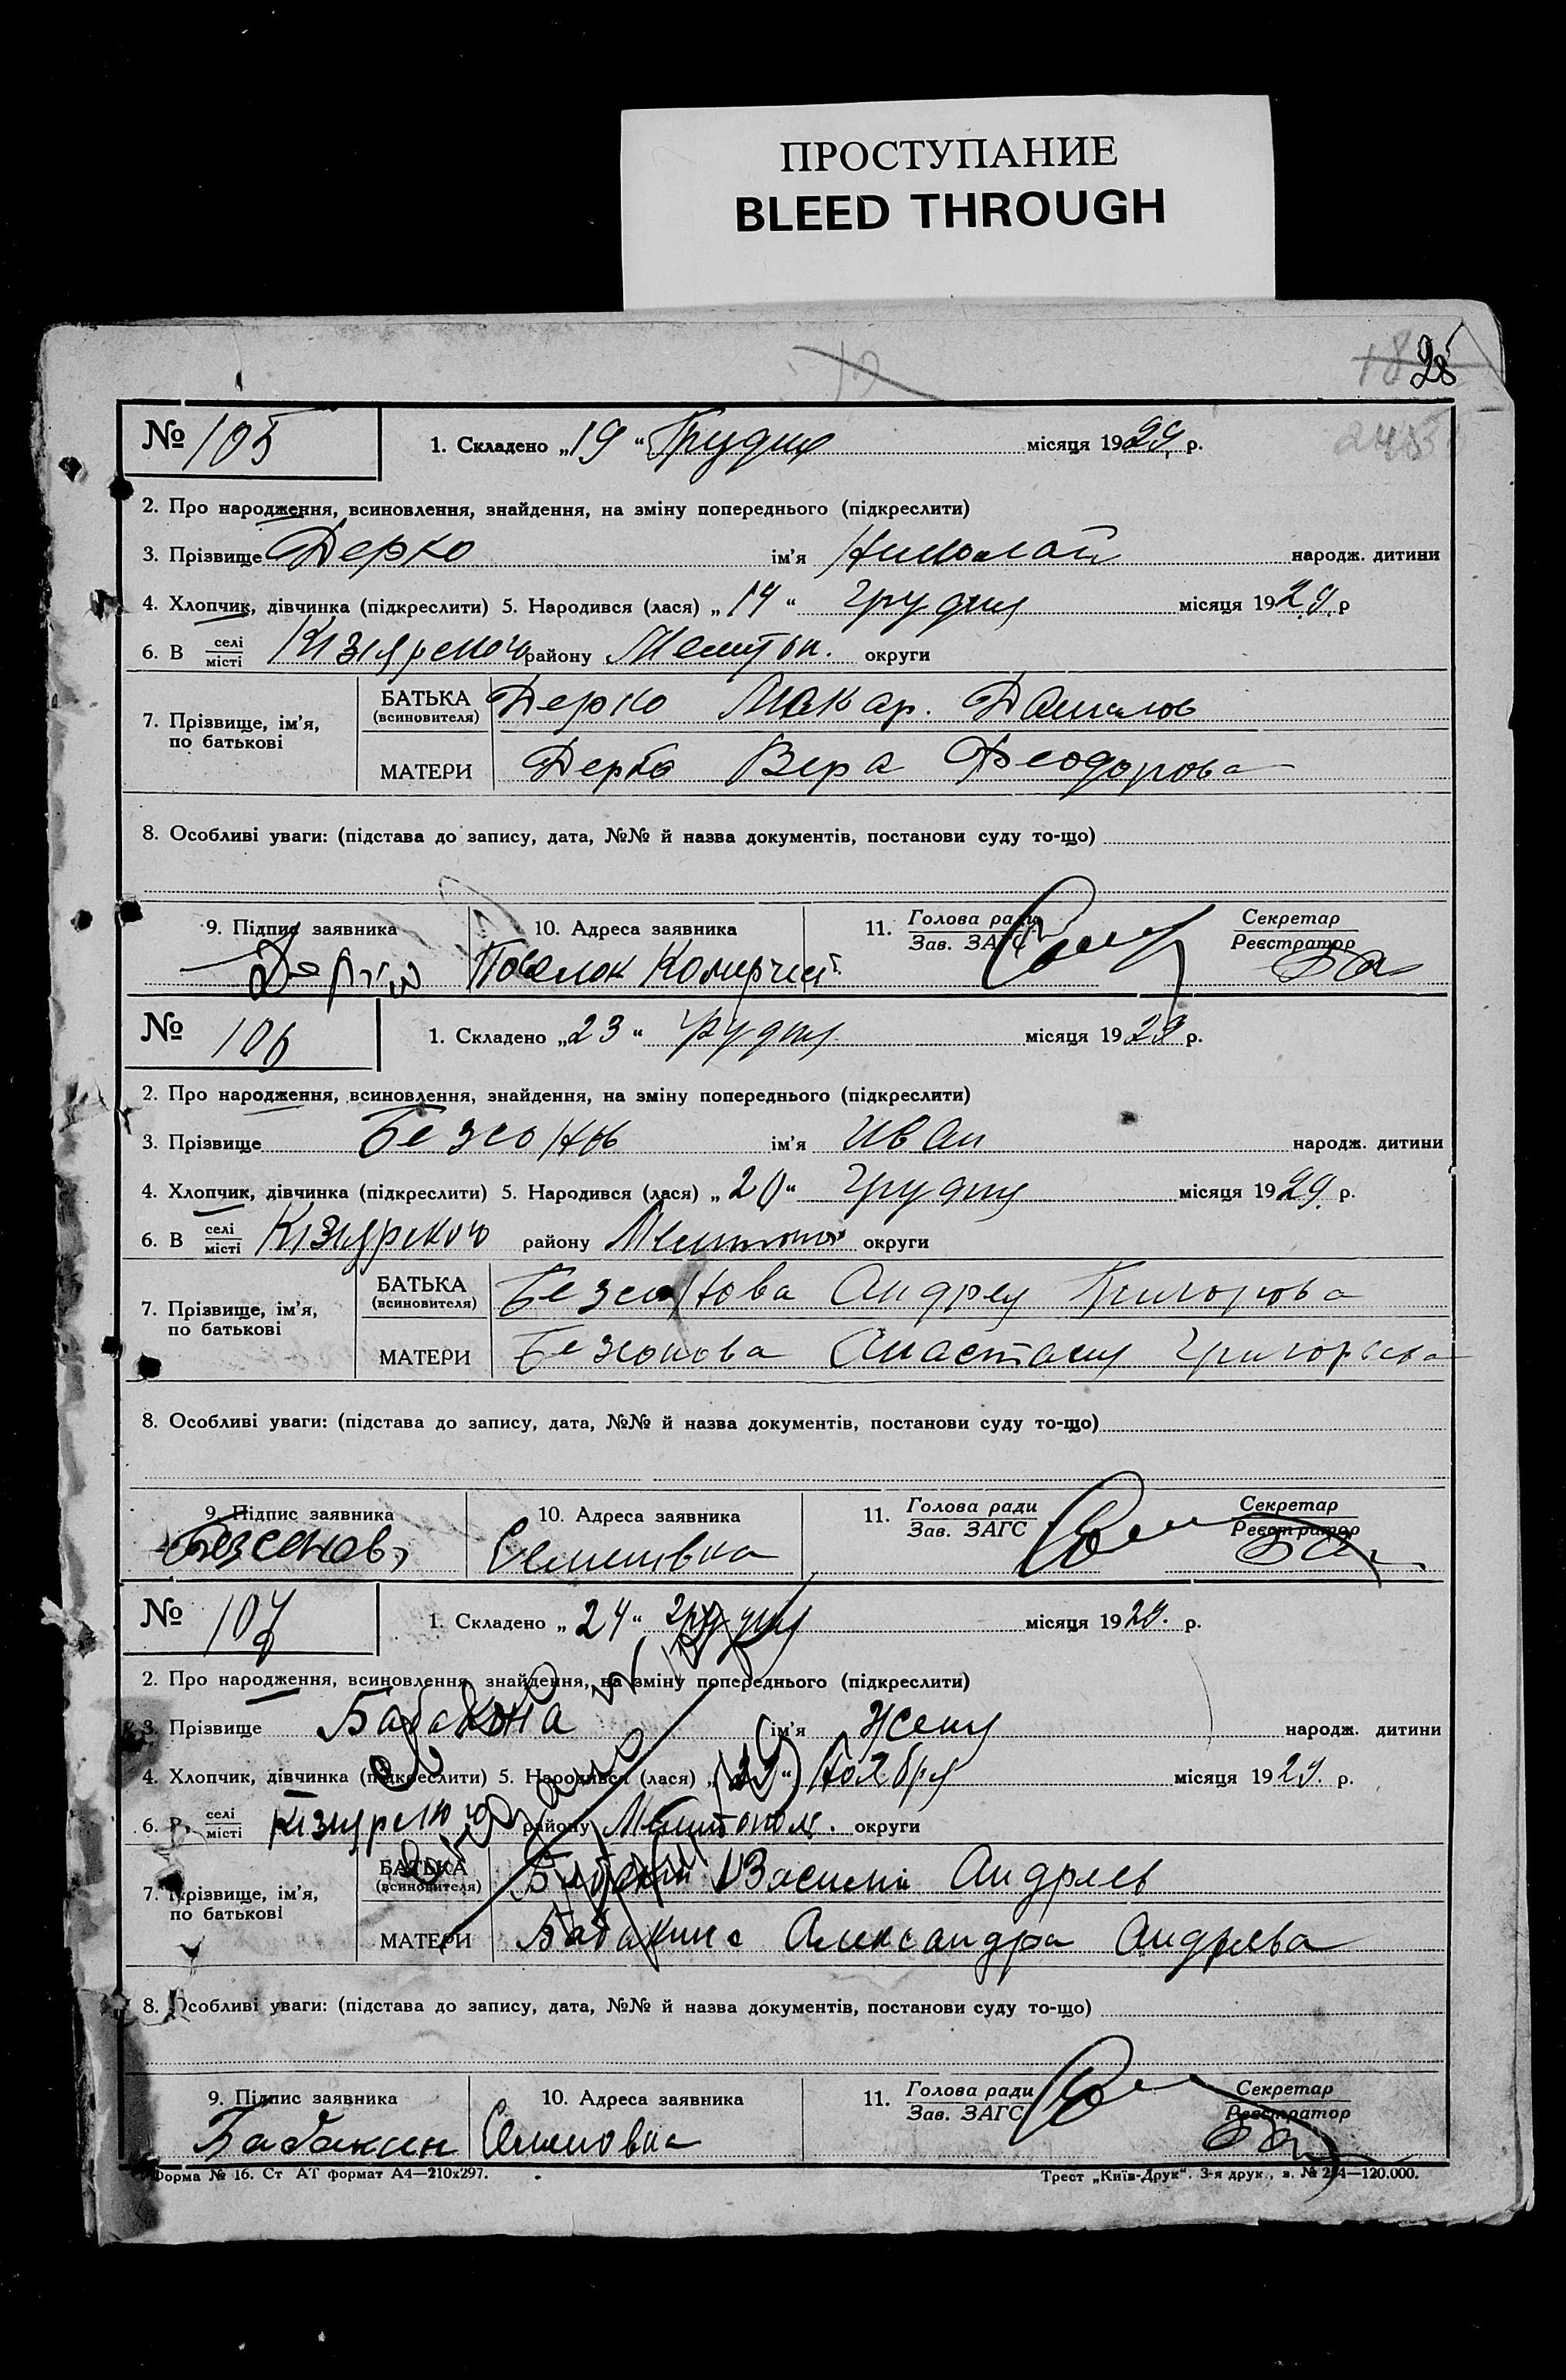 ПРОСТУПАНИЕ
BLEED THROUGH
25
№ 105 1. Складено „19“ Грудня місяця 1929 р.
2. Про народження, всиновлення, знайдення, на зміну попереднього (підкреслити)
3. Прізвище Дерко ім’я Николай народж. дитини
4. Хлопчик, дівчинка (підкреслити) 5. Народився (лася) „14“ грудня місяця 1929. р
6. В селі місті Кізіярского району Мелитоп. округи
7. Прізвище, ім’я, по батькові
БАТЬКА (всиновителя) Дерко Макар. Данилов
МАТЕРИ Дерко Вера Феодорова
8. Особливі уваги: (підстава до запису, дата, №№ й назва документів, постанови суду то-що)
9. Підпис заявника 10. Адреса заявника 11. Голова ради Зав. ЗАГС Секретар Реєстратор
Посёлок
№ 106 1. Складено „23“ грудня місяця 1929 р.
2. Про народження, всиновлення, знайдення, на зміну попереднього (підкреслити)
3. Прізвище Безсонов ім’я Иван народж. дитини
4. Хлопчик, дівчинка (підкреслити) 5. Народився (лася) „20“ грудня місяця 1929. р.
6. В селі місті Кізіярского району округи
7. Прізвище, ім’я, по батькові
БАТЬКА (всиновителя) Безсонова Андрея Григорова
МАТЕРИ Безсонова Анастасия Григорьева
8. Особливі уваги: (підстава до запису, дата, №№ й назва документів, постанови суду то-що)
9. Підпис заявника 10. Адреса заявника 11. Голова ради Зав. ЗАГС Секретар Реєстратор
Безсонов
№ 107 1. Складено „24“ грудня місяця 1929. р.
2. Про народження, всиновлення, знайдення, на зміну попереднього (підкреслити)
3. Прізвище ім’я Женя народж. дитини
4. Хлопчик, дівчинка (підкреслити) 5. Народився (лася) Ноября місяця 1929. р.
6. В селі місті Кізіярского району Мелитопол. округи
7. Прізвище, ім’я, по батькові
БАТЬКА (всиновителя) Василий Андреев
МАТЕРИ Бабакина Александра Андреева
8. Особливі уваги: (підстава до запису, дата, №№ й назва документів, постанови суду то-що)
9. Підпис заявника 10. Адреса заявника 11. Голова ради Зав. ЗАГС Секретар Реєстратор
Бабакин Семеновка
Форма № 16. Ст АТ формат А4—210х297. Трест „Київ-Друк“. 3-я друк., з. № —120.000.